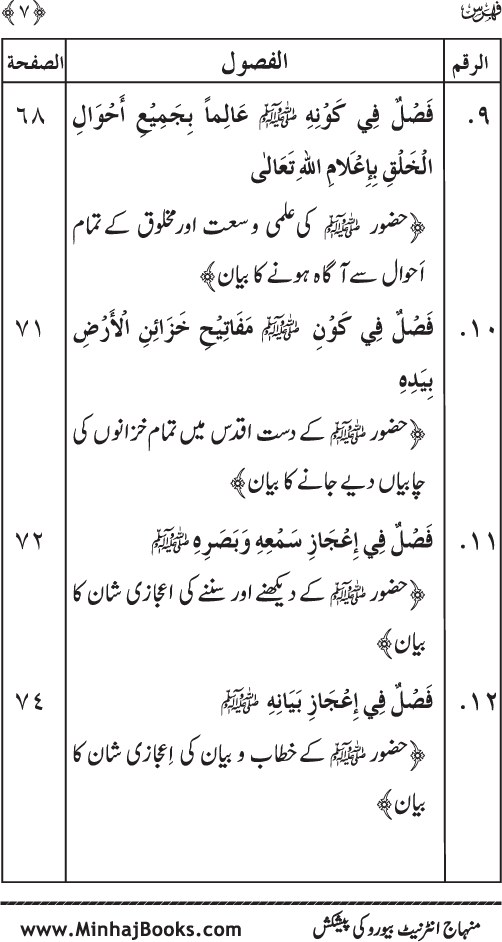 فہرس ﴿٧﴾
الرقم الفصول الصفحة
٩. فَصْلٌ فِي كَوْنِهِ ﷺ عَالِماً بِجَمِيْعِ أَحْوَالِ ٦٨
الْخَلْقِ بِإِعْلَامِ اللهِ تَعَالٰى
﴿حضور ﷺ کی علمی وسعت اور مخلوق کے تمام
اَحوال سے آگاہ ہونے کا بیان﴾
١٠. فَصْلٌ فِي كَوْنِ ﷺ مَفَاتِيْحِ خَزَائِنِ الْأَرْضِ ٧١
بِيَدِهِ
﴿حضور ﷺ کے دست اقدس میں تمام خزانوں کی
چابیاں دیے جانے کا بیان﴾
١١. فَصْلٌ فِي إِعْجَازِ سَمْعِهِ وَبَصَرِهِ ﷺ ٧٢
﴿حضور ﷺ کے دیکھنے اور سننے کی اعجازی شان کا
بیان﴾
١٢. فَصْلٌ فِي إِعْجَازِ بَيَانِهِ ﷺ ٧٤
﴿حضور ﷺ کے خطاب و بیان کی اِعجازی شان کا
بیان﴾
منہاج انٹرنیٹ بیورو کی پیشکش www.MinhajBooks.com